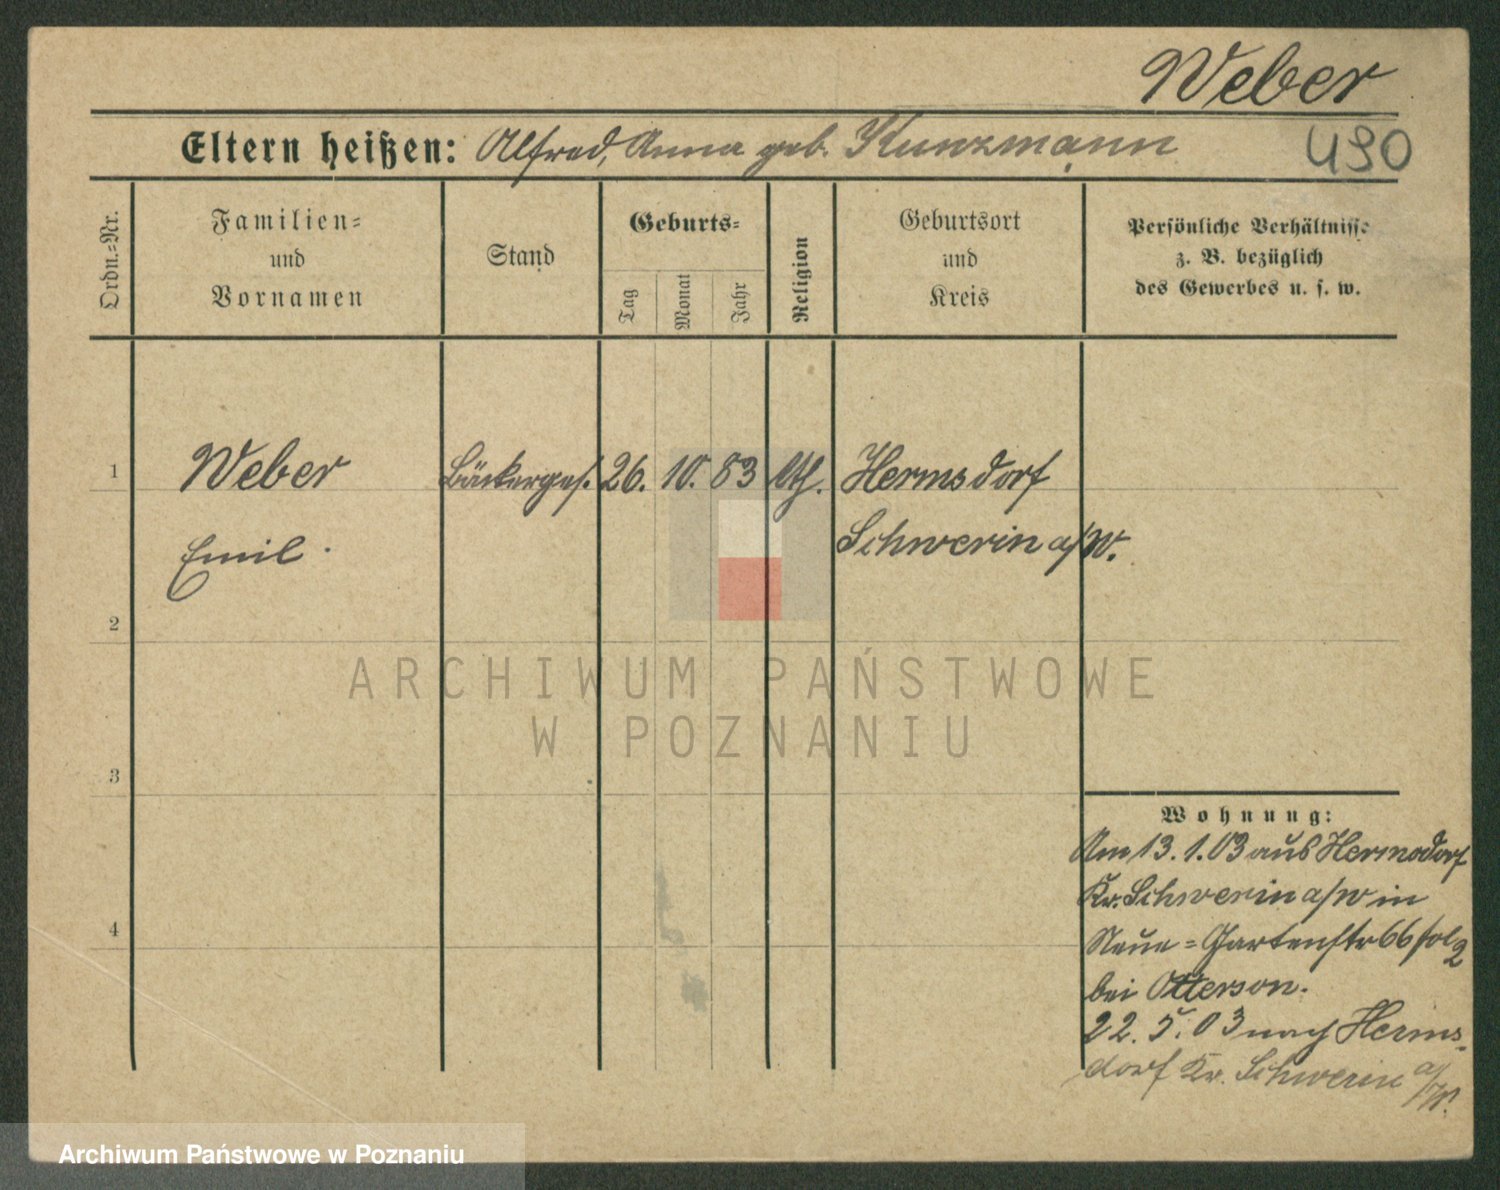 Weber
Eltern heißen: Alfred, Anna geb. Kunzmann
490
Ordn.-Nr.
Familien-
und
Vornamen
Stand
Geburts-
Tag
Monat
Jahr
Religion
Geburtsort
und
Kreis
Persönliche Verhältnisse
z. B. bezüglich
des Gewerbes u. s. w.
1 Weber Bäckerges. 26. 10. 83 Hermsdorf
Emil. Schwerin a/W.
2
ARCHIWUM PAŃSTWOWE
W POZNANIU
3
Wohnung:
Am 13.1.03 aus Hermsdorf
Kr. Schwerin a/W in
4
Neue=Gartenstr 66
bei Otterson.
22.5.03 nach Herms-
dorf Kr. Schwerin a/W.
Archiwum Państwowe w Poznaniu